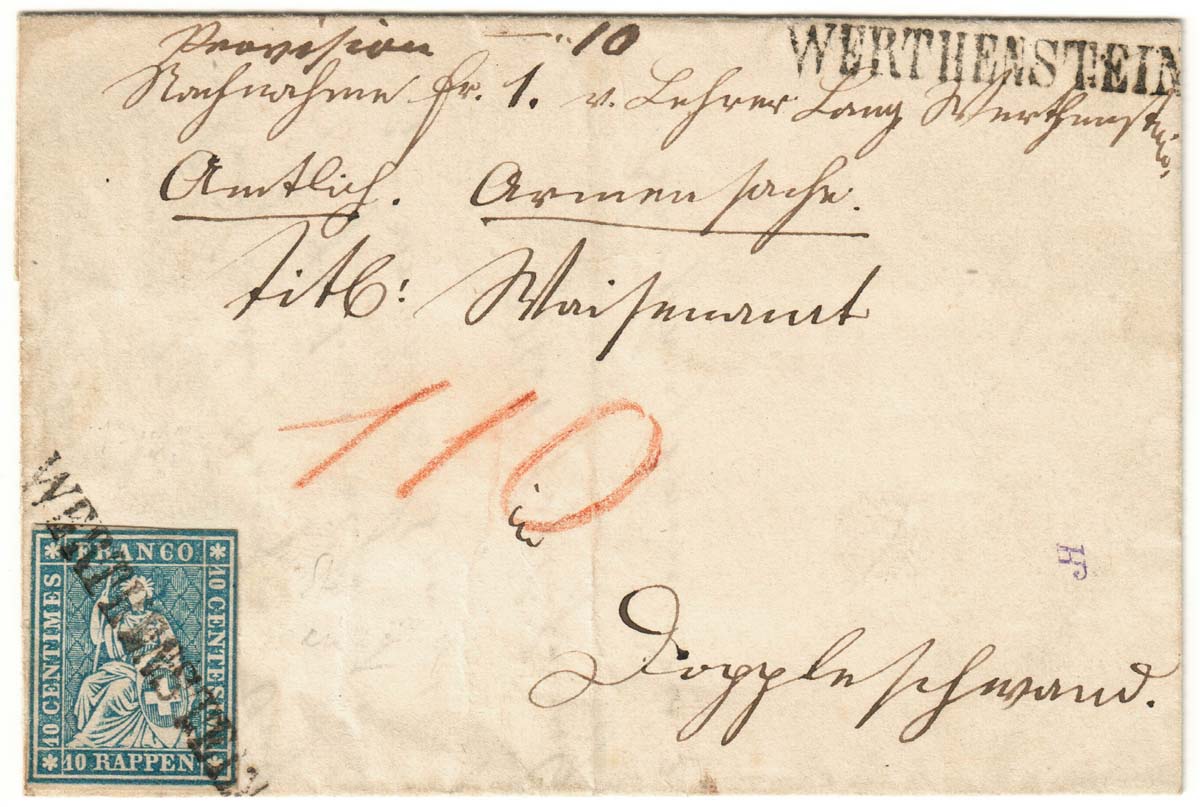 Provision —„10
WERTHENSTEIN
Nachnahme fr. 1. v. Lehrer Lang Werthenstein,
Amtlich. Armensache.
Titl: Waisenamt
110
in
Doppleschwand.
WERTHENSTEIN
FRANCO
10 CENTIMES
10 CENTESIMI
10 RAPPEN